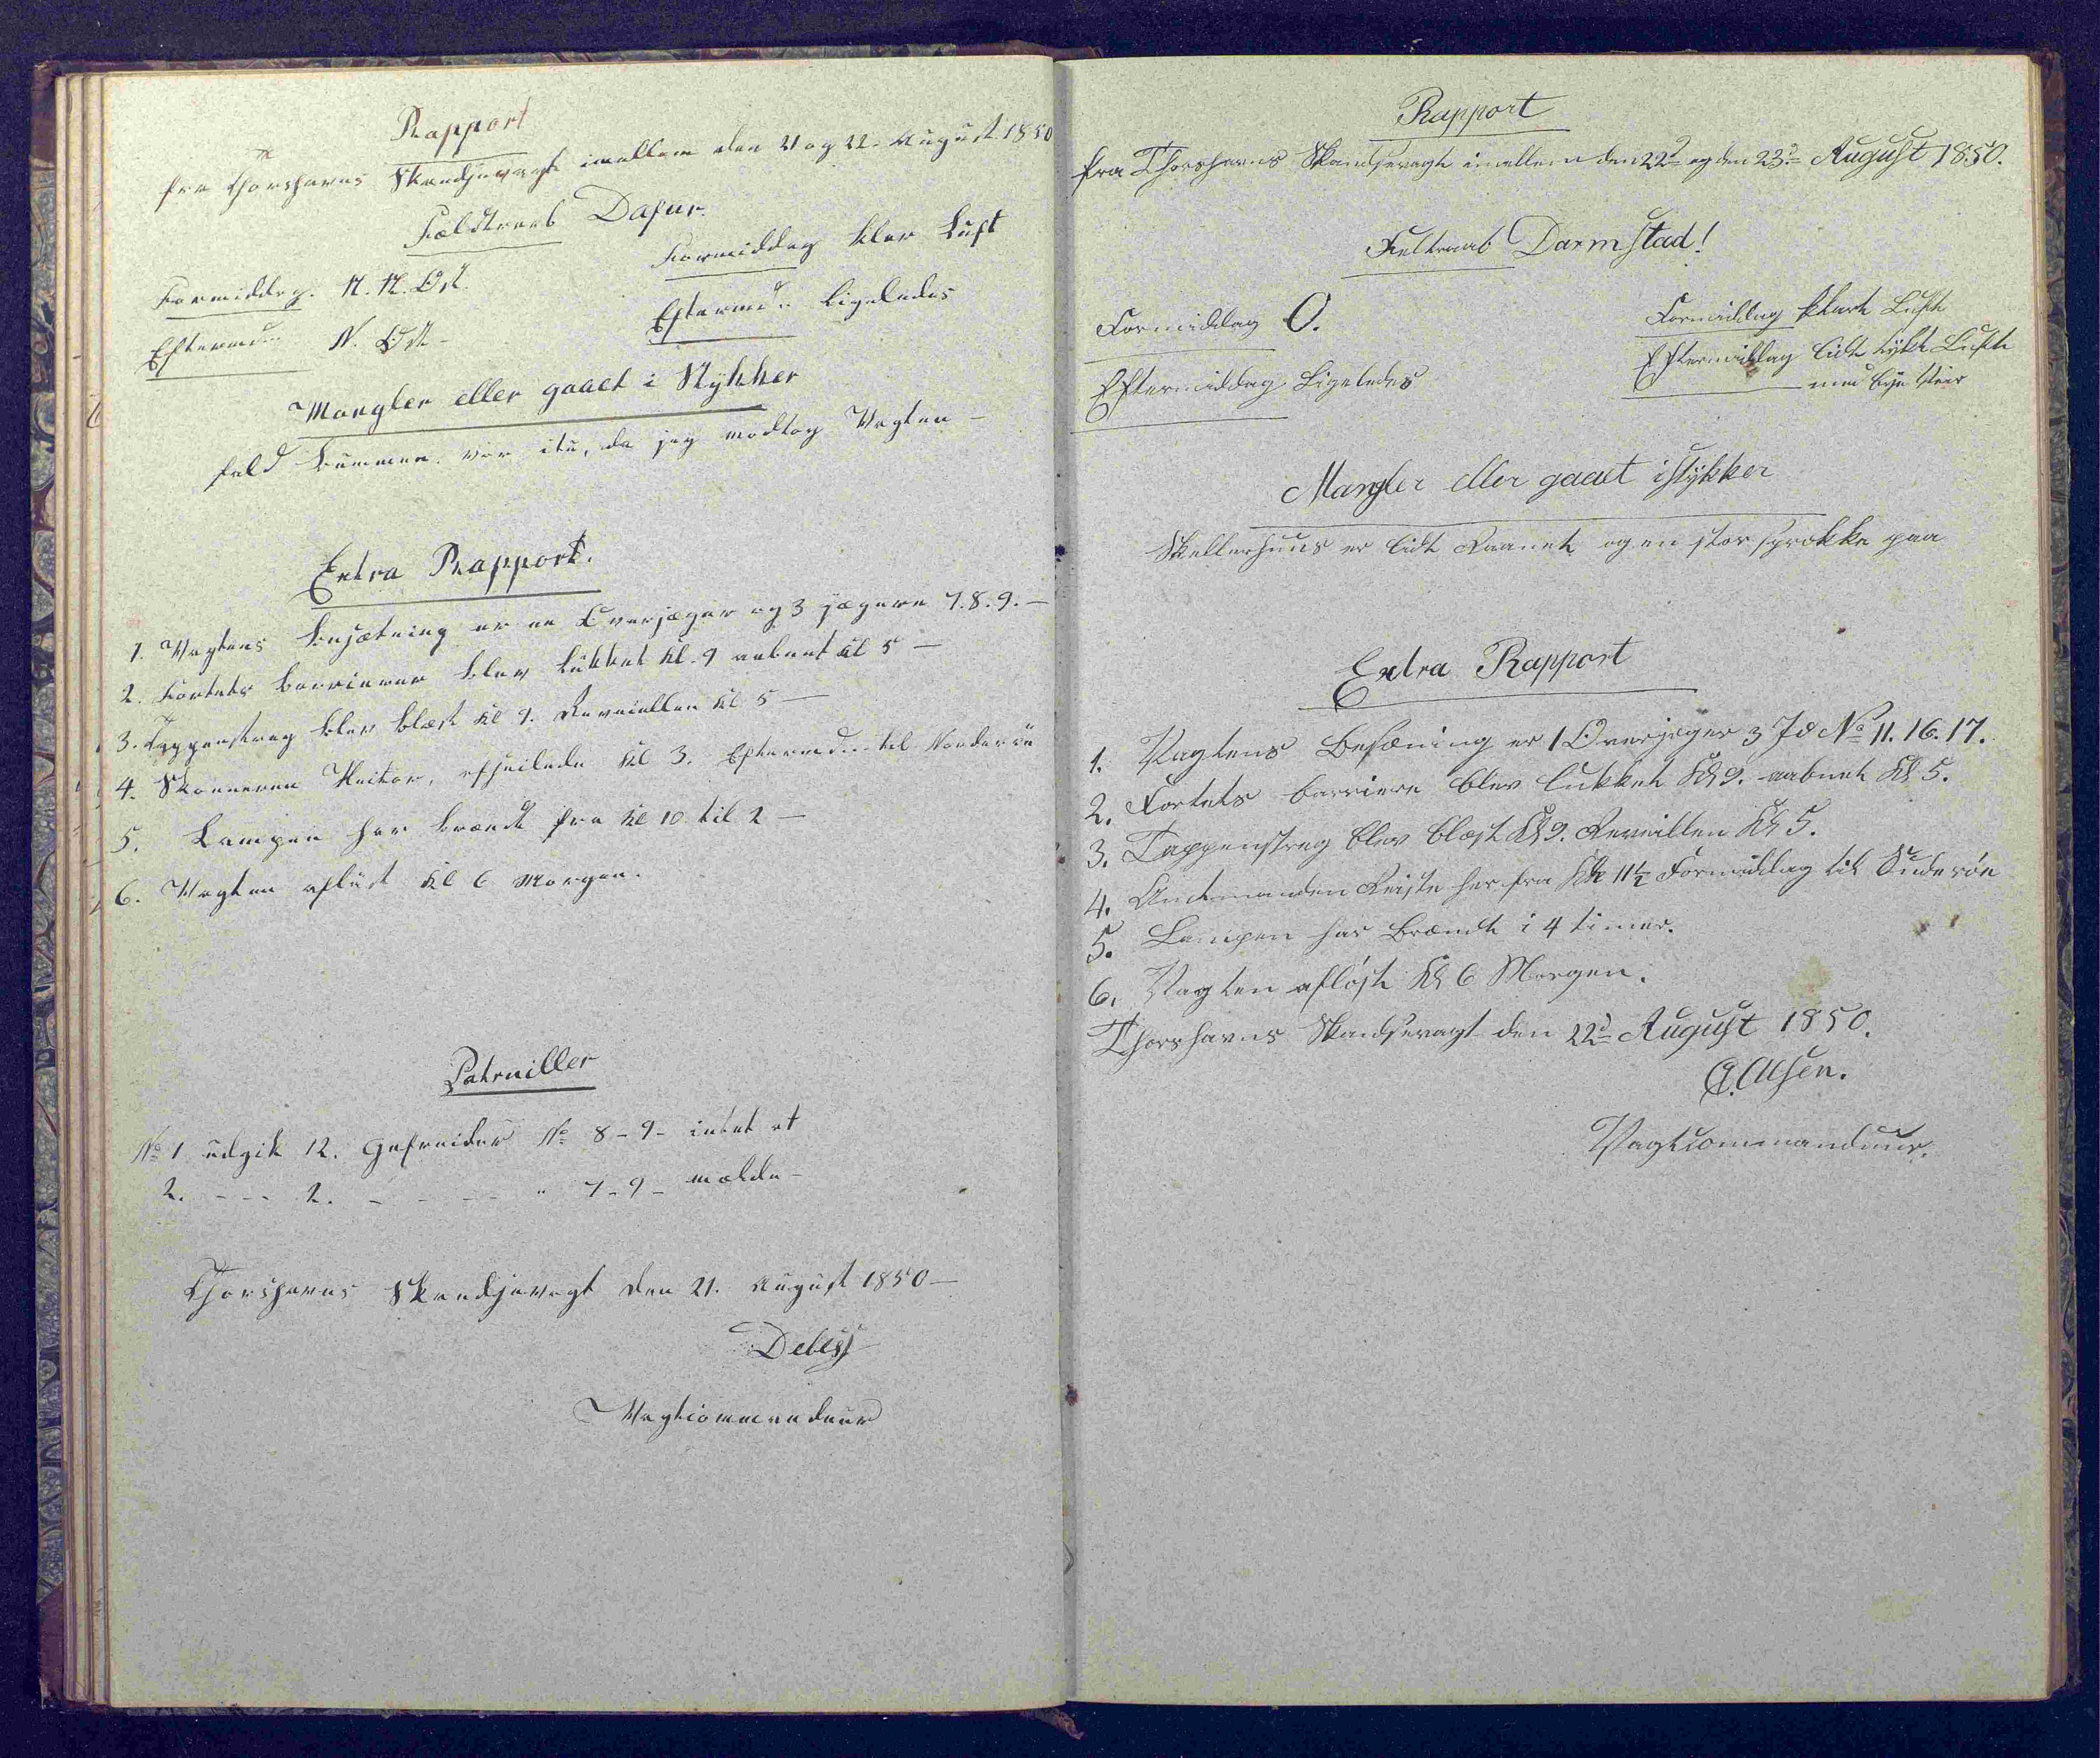 Rapport
fra Thorshavns Skandsevagt imellem den 21 og 22. August 1850
Feldtraab Dafur.
Formiddag. N. N. Ost.
Formiddag klar Luft
Eftermd. N. Ost.
Eftermd. Ligeledes
Mangler eller gaaet i Stykker
Feld Kummen var itu, da jeg modtog Vagten –
Extra Rapport.
1. Vagtens besætning er en Overjæger og 3 jægere 7. 8. 9. –
2. Fortets Barrierer blev lukket Kl. 9 aabnet Kl 5 –
3. Tappenstreg blev blæst Kl 9. Reveiellen Kl 5 –
4. Skonneren Hector, afseilede Kl 3. Eftermd. til Norderøe
5. Lampen har brændt fra Kl 10 til 2 –
6. Vagten afløst Kl 6 Morgen.
Patruiller
No 1 udgik 12. Gefreider No 8 - 9 - intet at
2. - - - 2. - - - - " 7 - 9 - melde -
Thorshavns Skandsevagt den 21. August 1850 –
Debess
Vagtcommandeur
Rapport
fra Thorshavns Skandsevagt imellem den 22d og den 23d August 1850.
Feltraab Darmstad!
Formiddag O.
Formiddag klart Luft
Eftermiddag Ligeledes
Eftermiddag lidt tykt Luft
med bye Veir
Mangler eller gaaet istykker
Skellerhuus er lidt Raanet og en stor sprække paa
Extra Rapport
1. Vagtens Besæning er 1 Overjeger 3 Jd No 11. 16. 17.
2. Fortets barriere blev lukket Kl 9. aabnet Kl 5.
3. Tappenstreg blev blæst Kl 9. Reveillen Kl 5.
4. Amtmanden Reiste her fra Kl 11½ Formiddag til Suderøe
5. Lampen har Brændt i 4 timer.
6. Vagten afløst Kl 6 Morgen.
Thorshavns Skandsevagt den 22d August 1850.
Olsen.
Vagtcommandeur.